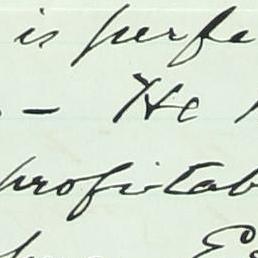 is perfe
- He
profitab